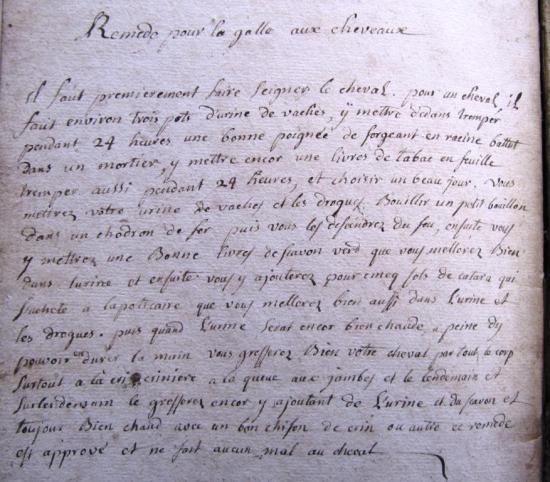 Remede pour la galle aux cheveaux
il faut premierement faire seigner le cheval. pour un cheval il
faut environ trois pots d'urine de vaches, ÿ mettre dedans tremper
pendant 24 heures une bonne poignée de forgeant en racine battut
dans un mortier, y mettre encor une livres de tabac en feuille
tremper aussi pendant 24 heures, et choisir un beau jour. vous
mettrez votre urine de vaches et les drogues. Bouillir un petit bouillon
dans un chodron de fer puis vous les descendrez du feu, ensuite vous
y mettrez une Bonne livres de savon verd que vous mellerez Bien
dans lurine et ensuite vous y ajouterez pour cinq sols de catara qui
sachete a lapoticaire que vous mellerez bien aussi dans L'urine et
les drogues. puis quand L'urine serat encor bien chaude a peine dy
pouvoir en durer la main vous gresserez Bien votre cheval par tout le corp
surtout a la crinière a la queue aux jambes et le lendemain et
surlendemain le gresserez encor y ajoutant de L'urine et du savon et
toujour Bien chaud avec un bon chifon de crin ou autre ce remede
est approuvé et ne fait aucun mal au cheval